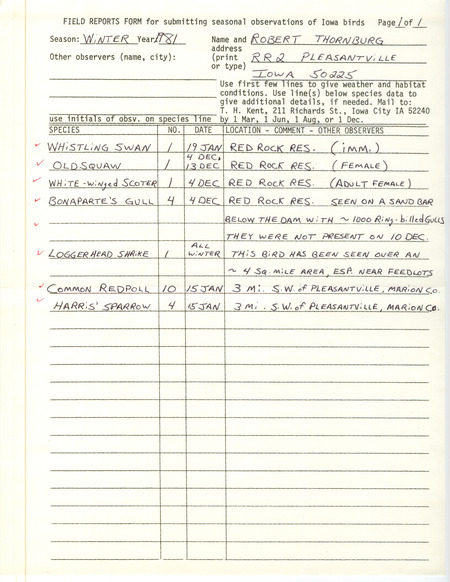 FIELD REPORTS FORM for submitting seasonal observations of Iowa birds Page 1 of 1
Season: WINTER Year 1981 Name and ROBERT THORNBURG
address
Other observers (name, city): (print RR2 PLEASANTVILLE
or type)
IOWA 50225
Use first few lines to give weather and habitat
conditions. Use line(s) below species data to
give additional details, if needed. Mail to:
T. H. Kent, 211 Richards St., Iowa City IA 52240
use initials of obsv. on species line by 1 Mar, 1 Jun, 1 Aug, or 1 Dec.
SPECIES NO. DATE LOCATION - COMMENT - OTHER OBSERVERS
WHISTLING SWAN 1 19 JAN RED ROCK RES. (IMM.)
4 DEC,
OLDSQUAW 1 13 DEC RED ROCK RES. (FEMALE)
WHITE-winged SCOTER 1 4 DEC RED ROCK RES. (ADULT FEMALE)
BONAPARTE'S GULL 4 4 DEC RED ROCK RES. SEEN ON A SAND BAR
BELOW THE DAM WITH ~ 1000 Ring-billed GULLS
THEY WERE NOT PRESENT ON 10 DEC.
LOGGERHEAD SHRIKE 1 ALL WINTER THIS BIRD HAS BEEN SEEN OVER AN
~ 4 SQ. MILE AREA, ESP. NEAR FEEDLOTS
COMMON REDPOLL 10 15 JAN 3 Mi. S.W. of PLEASANTVILLE, MARION CO.
HARRIS' SPARROW 4 15 JAN 3 Mi. S.W. of PLEASANTVILLE, MARION CO.